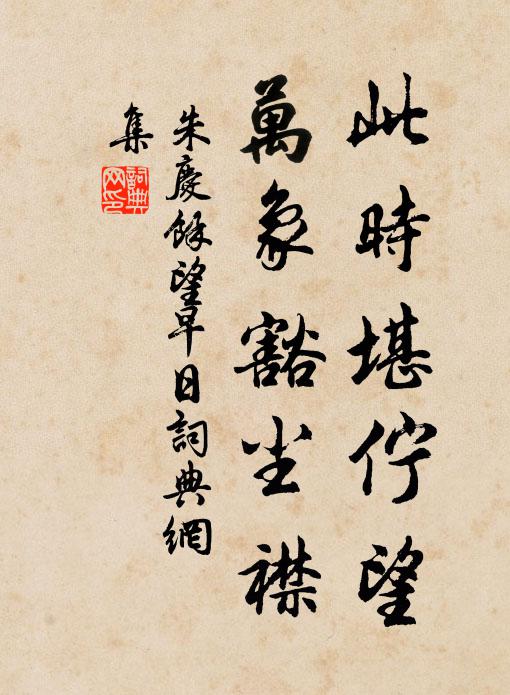 此時堪佇望
萬象豁尘襟
朱慶餘望早日詞典網
集
詞典
网印